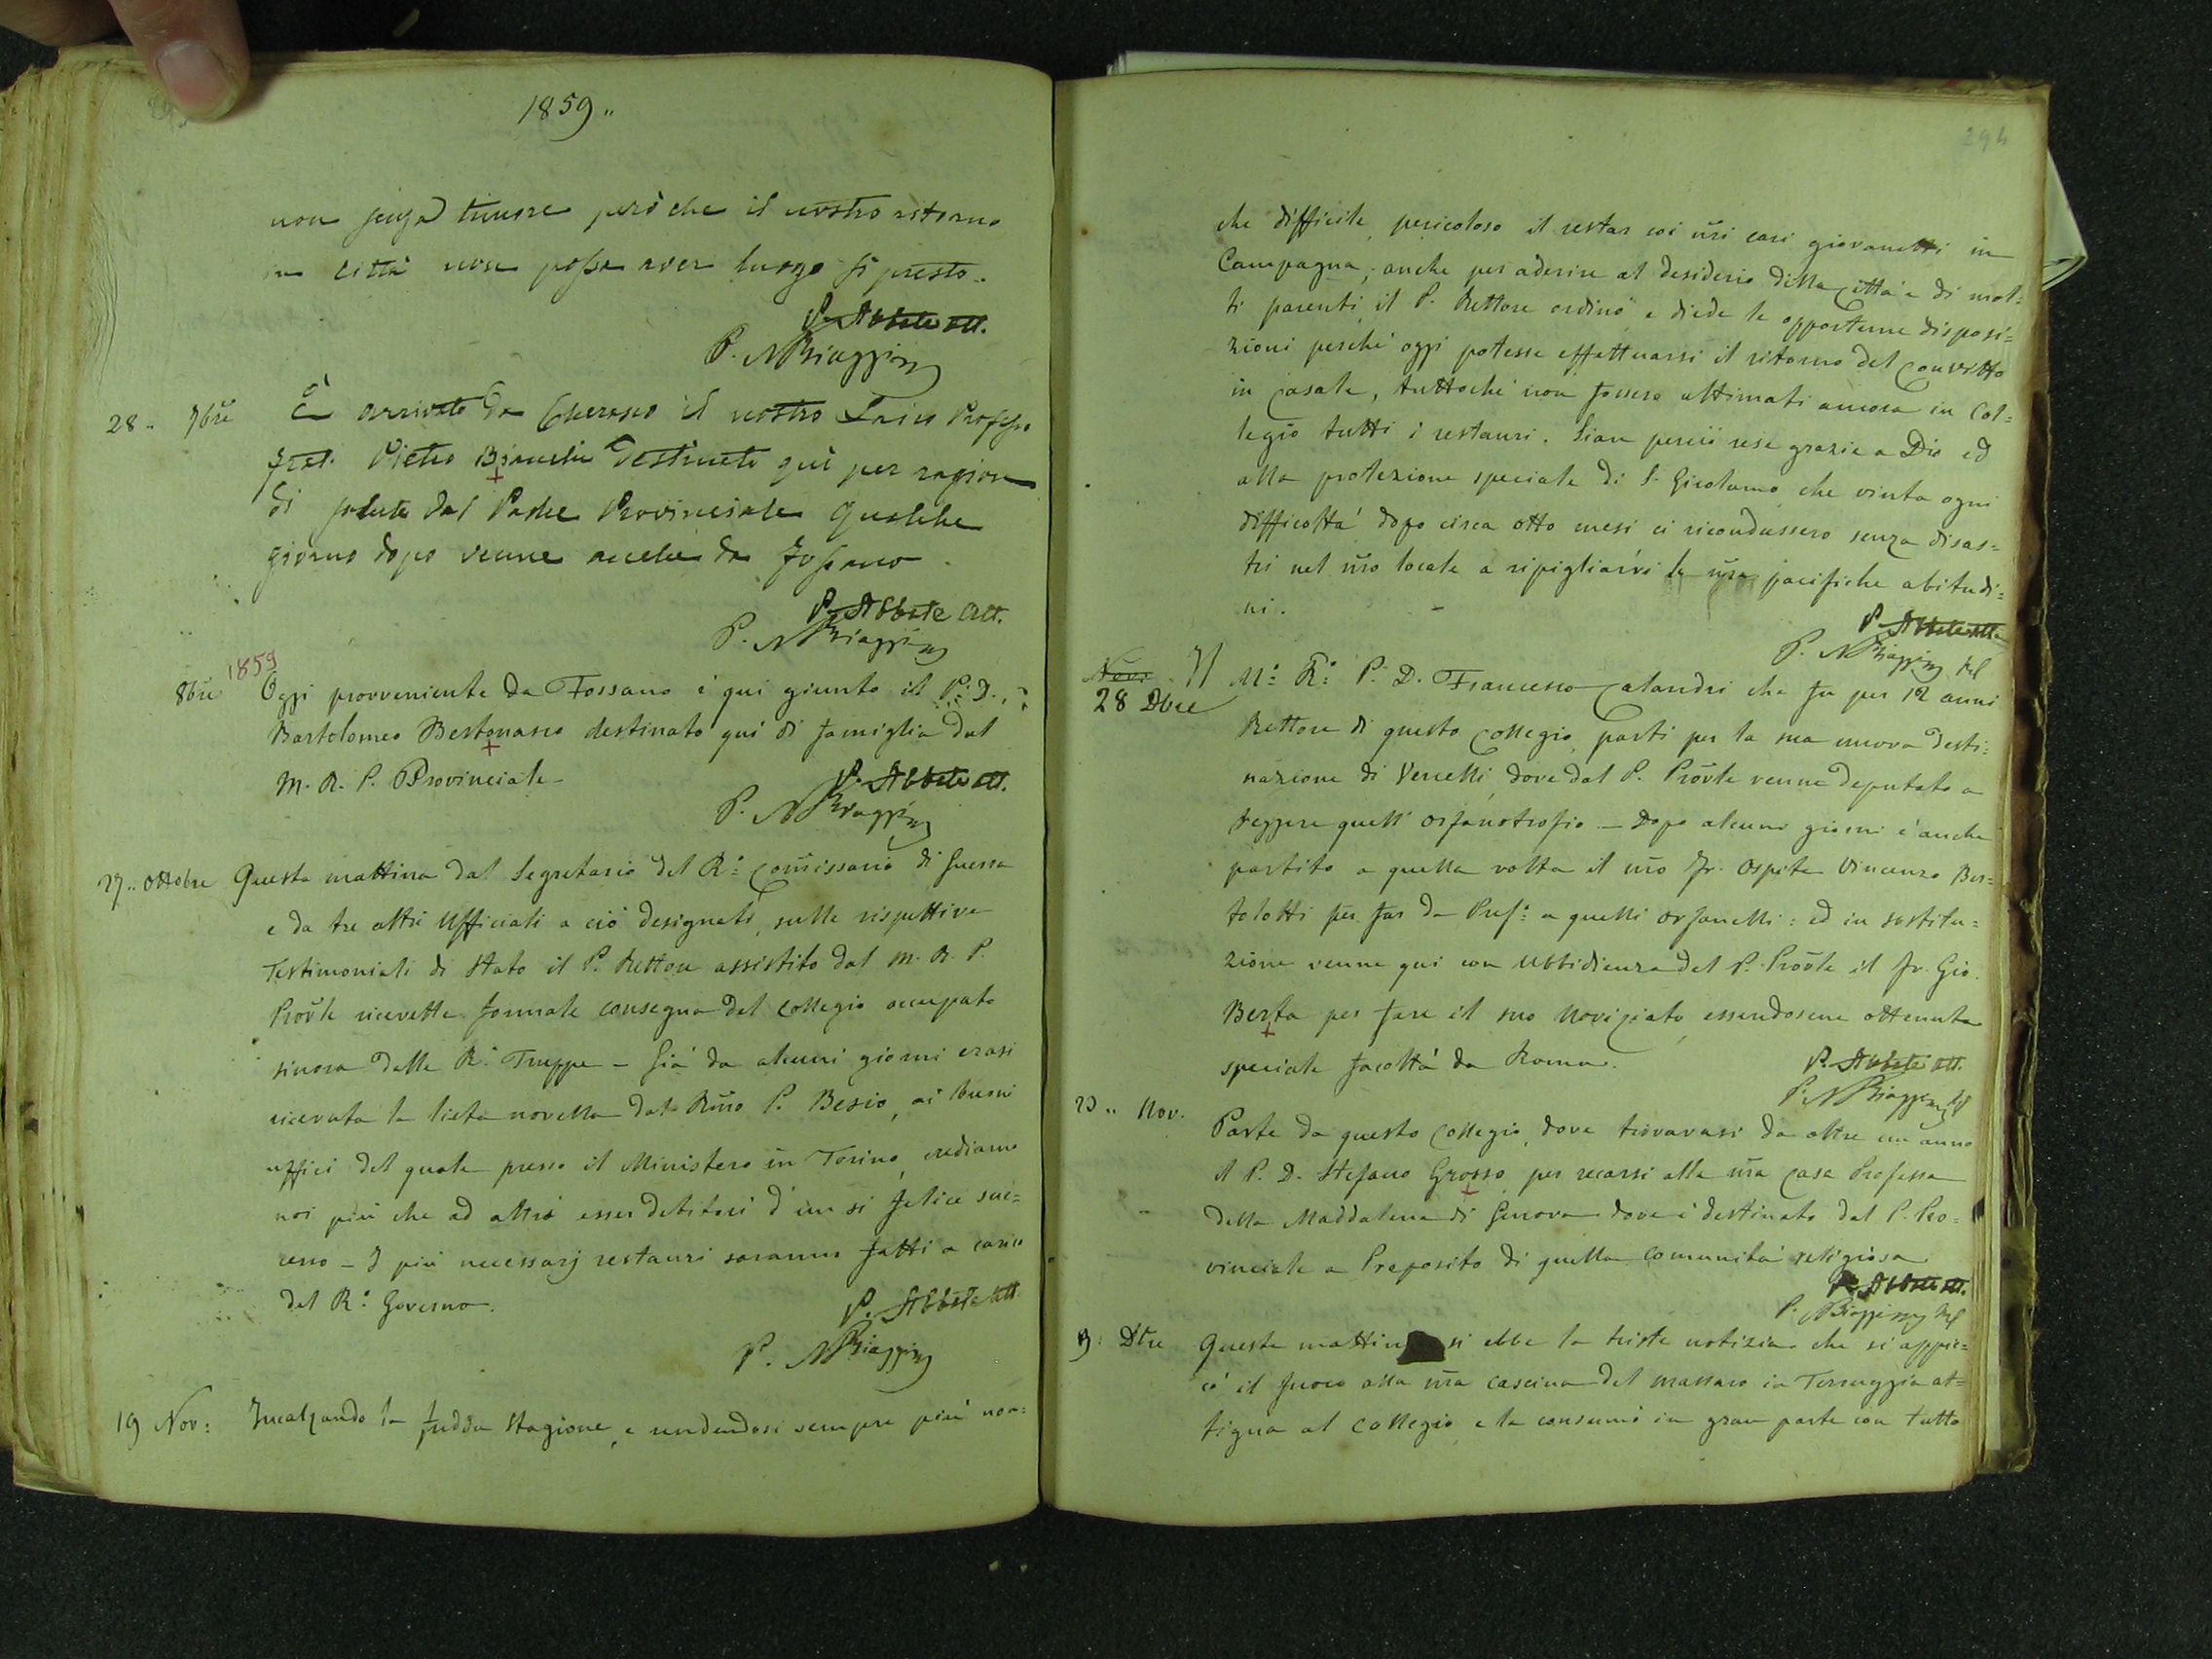 1859..
non senza timore però che il nostro ritorno
in città non possa aver luogo sì presto..
P. Abbate att.
P. N Biaggi
28.. 7bre È arrivato da Cherasco il nostro Laico Professo
Frat. Pietro Bianchi destinato quì per ragion
di salute dal Padre Provinciale Qualche
giorno dopo venne anche da Fossano
P. Abbate Att.
P. N Biaggi
1859
8bre Oggi provveniente da Fossano è qui giunto il P. D.
Bartolomeo Bertonasco destinato qui di famiglia dal
M. R. P. Provinciale
P. Abbate att.
P. N Biaggi
27.. Ottobre Questa mattina dal Segretario del R.° Comissario di Guerra
e da tre altri Ufficiali a ciò designati, sulle rispettive
Testimoniali di Stato il P. Rettore assistito dal M. R. P.
Prov̄le ricevette formale consegna del Collegio occupato
sinora dalle R.e Truppe - Già da alcuni giorni erasi
ricevuta la lieta novella dal Rm̄o P. Besio, ai buoni
uffici del quale presso il Ministero in Torino, crediamo
noi più che ad altri esser debitori d'un sì felice suc=
cesso - I più necessarj restauri saranno fatti a carico
del R.° Governo.
P. Abbate att.
P. N Biaggi
19 Nov: Incalzando la fredda Stagione, e rendendosi sempre più non=
294
che difficile, pericoloso il restar coi nr̄i cari giovanetti in
Campagna; anche per aderire al desiderio della Città e di mol=
ti parenti, il P. Rettore ordinò e diede le opportune disposi=
zioni perchè oggi potesse effettuarsi il ritorno del Convitto
in Casale, tuttochè non fossero ultimati ancora in Col=
legio tutti i restauri. Sian perciò rese grazie a Dio ed
alla protezione speciale di S. Girolamo che vinta ogni
difficoltà dopo circa otto mesi ci ricondussero senza disas=
tri nel nr̄o locale a ripigliarvi le nr̄e pacifiche abitudi=
ni.
P. Abbate att.
P. N Biaggi
Nov:
28 Dbre Il M.° R.° P. D. Francesco Calandri che fu per 12 anni
Rettore di questo Collegio, partì per la sua nuova desti=
nazione di Vercelli, dove dal P. Prov̄le venne deputato a
reggere quell' Orfanotrofio - Dopo alcuni giorni è anche
partito a quella volta il nr̄o Fr. Ospite Vincenzo Ber=
tolotti per far da Pref.° a quelli Orfanelli: ed in sostitu=
zione venne qui con Ubbidienza del P. Prov̄le il Fr. Gio.
Berta per fare il suo Noviziato, essendosene ottenuta
speciale facoltà da Roma.
P. Abbate att.
P. N Biaggi
23.. Nov. Parte da questo Collegio, dove trovavasi da oltre un anno
il P. D. Stefano Grosso, per recarsi alla nr̄a Casa Professa
della Maddalena di Genova dove è destinato dal P. Pro=
vinciale a Preposito di quella Comunità religiosa
P. Abbate att.
P. N Biaggi
Dbre Questa mattina si ebbe la triste notizia che si appic=
cò il fuoco alla nr̄a Cascina del massaro in Terruggia at=
tigua al Collegio e la consumò in gran parte con tutto